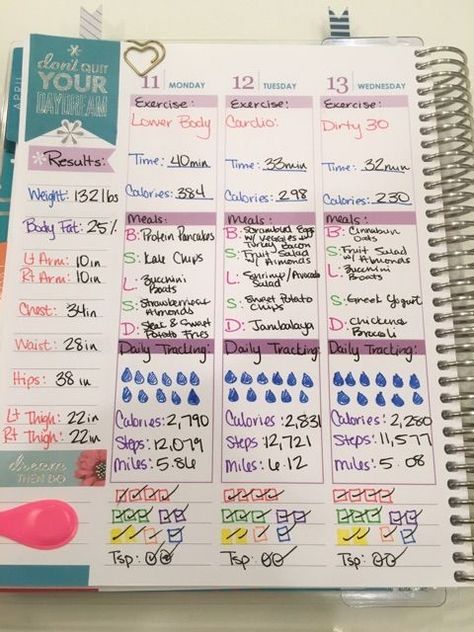 APRIL
don't QUIT
YOUR
DAYDREAM
Results:
Weight: 132 lbs
Body Fat: 25%
Lt Arm: 10in
Rt Arm: 10in
Chest: 34in
Waist: 28in
Hips: 38in
Lt Thigh: 22in
Rt Thigh: 22in
dream
THEN DO
11 MONDAY
Exercise:
Lower Body
Time: 40min
Calories: 384
Meals:
B: Protein Pancakes
S: Kale Chips
L: Zucchini
Boats
S: Strawberries &
Almonds
D: Steak & Sweet
Potato Fries
Daily Tracking:
Calories: 2,790
Steps: 12,079
Miles: 5.86
Tsp:
12 TUESDAY
Exercise:
Cardio:
Time: 33min
Calories: 298
Meals:
B: Scrambled Eggs
w/ Veggies w/
Turkey Bacon
S: Fruit Salad
w/ Almonds
L: Shrimp/Avocado
Salad
S: Sweet Potato
Chips
D: Jambalaya
Daily Tracking:
Calories: 2,831
Steps: 12,721
Miles: 6.12
Tsp:
13 WEDNESDAY
Exercise:
Dirty 30
Time: 32min
Calories: 230
Meals:
B: Cinnabun
Oats
S: Fruit Salad
w/ Almonds
L: Zucchini
Boats
S: Greek Yogurt
D: Chicken &
Broccoli
Daily Tracking:
Calories: 2,280
Steps: 11,577
Miles: 5.08
Tsp: